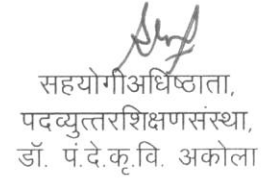 सहयोगीअधिष्ठाता,
पदव्युत्तरशिक्षणसंस्था,
डॉ. पं.दे.कृ.वि. अकोला